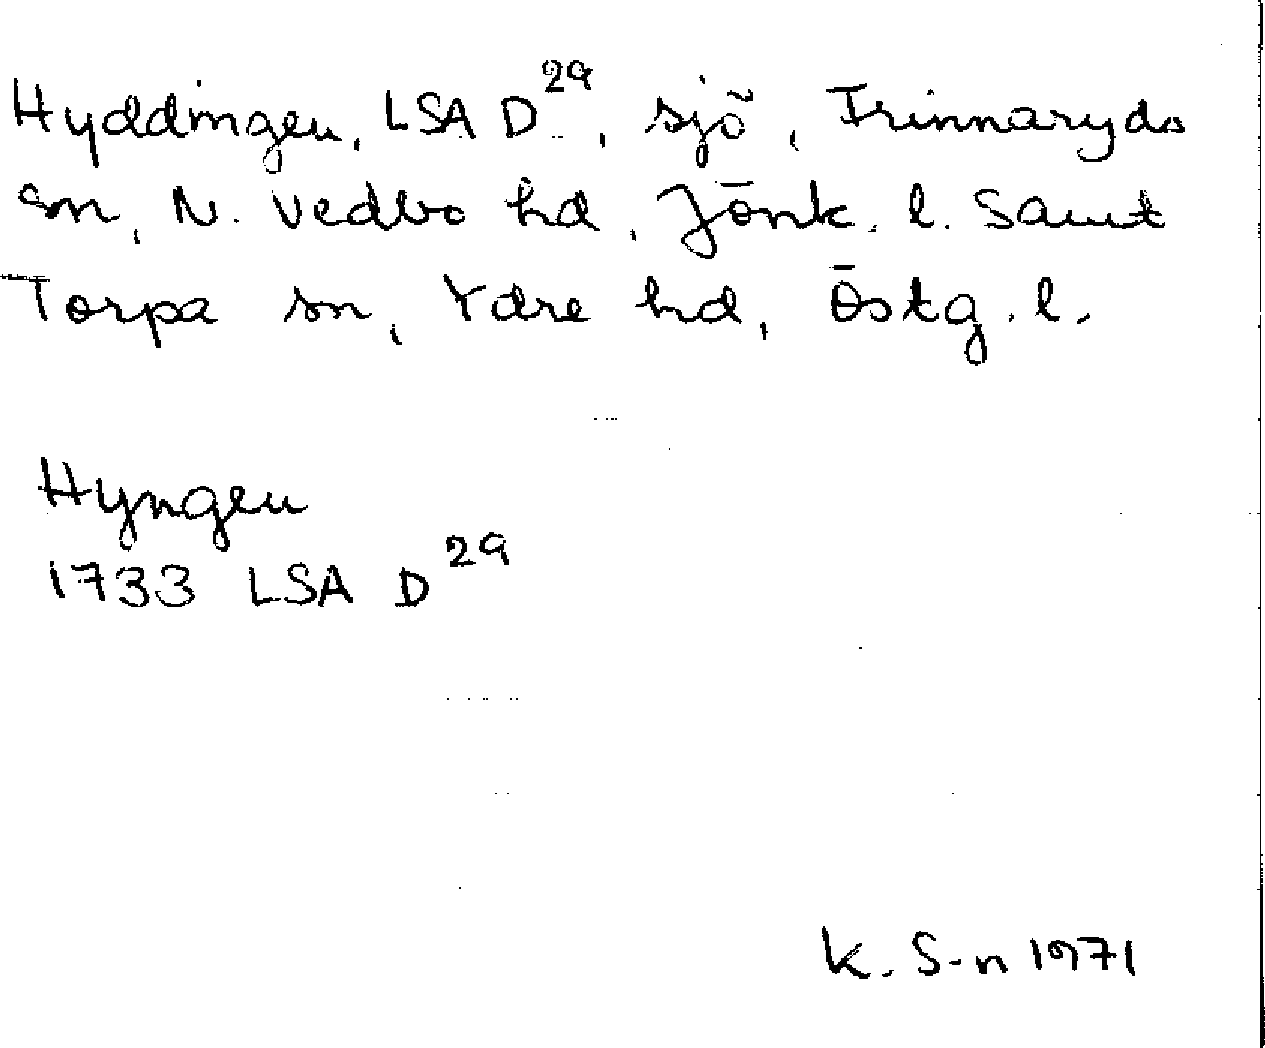 Hyddingen, LSA D²⁹, sjö, Trinnaryds
sn, N. Vedbo hd, Jönk. l. samt
Torpa sn, Ydre hd, Östg. l.
Hyngen
1733 LSA D²⁹
K. S-n 1971